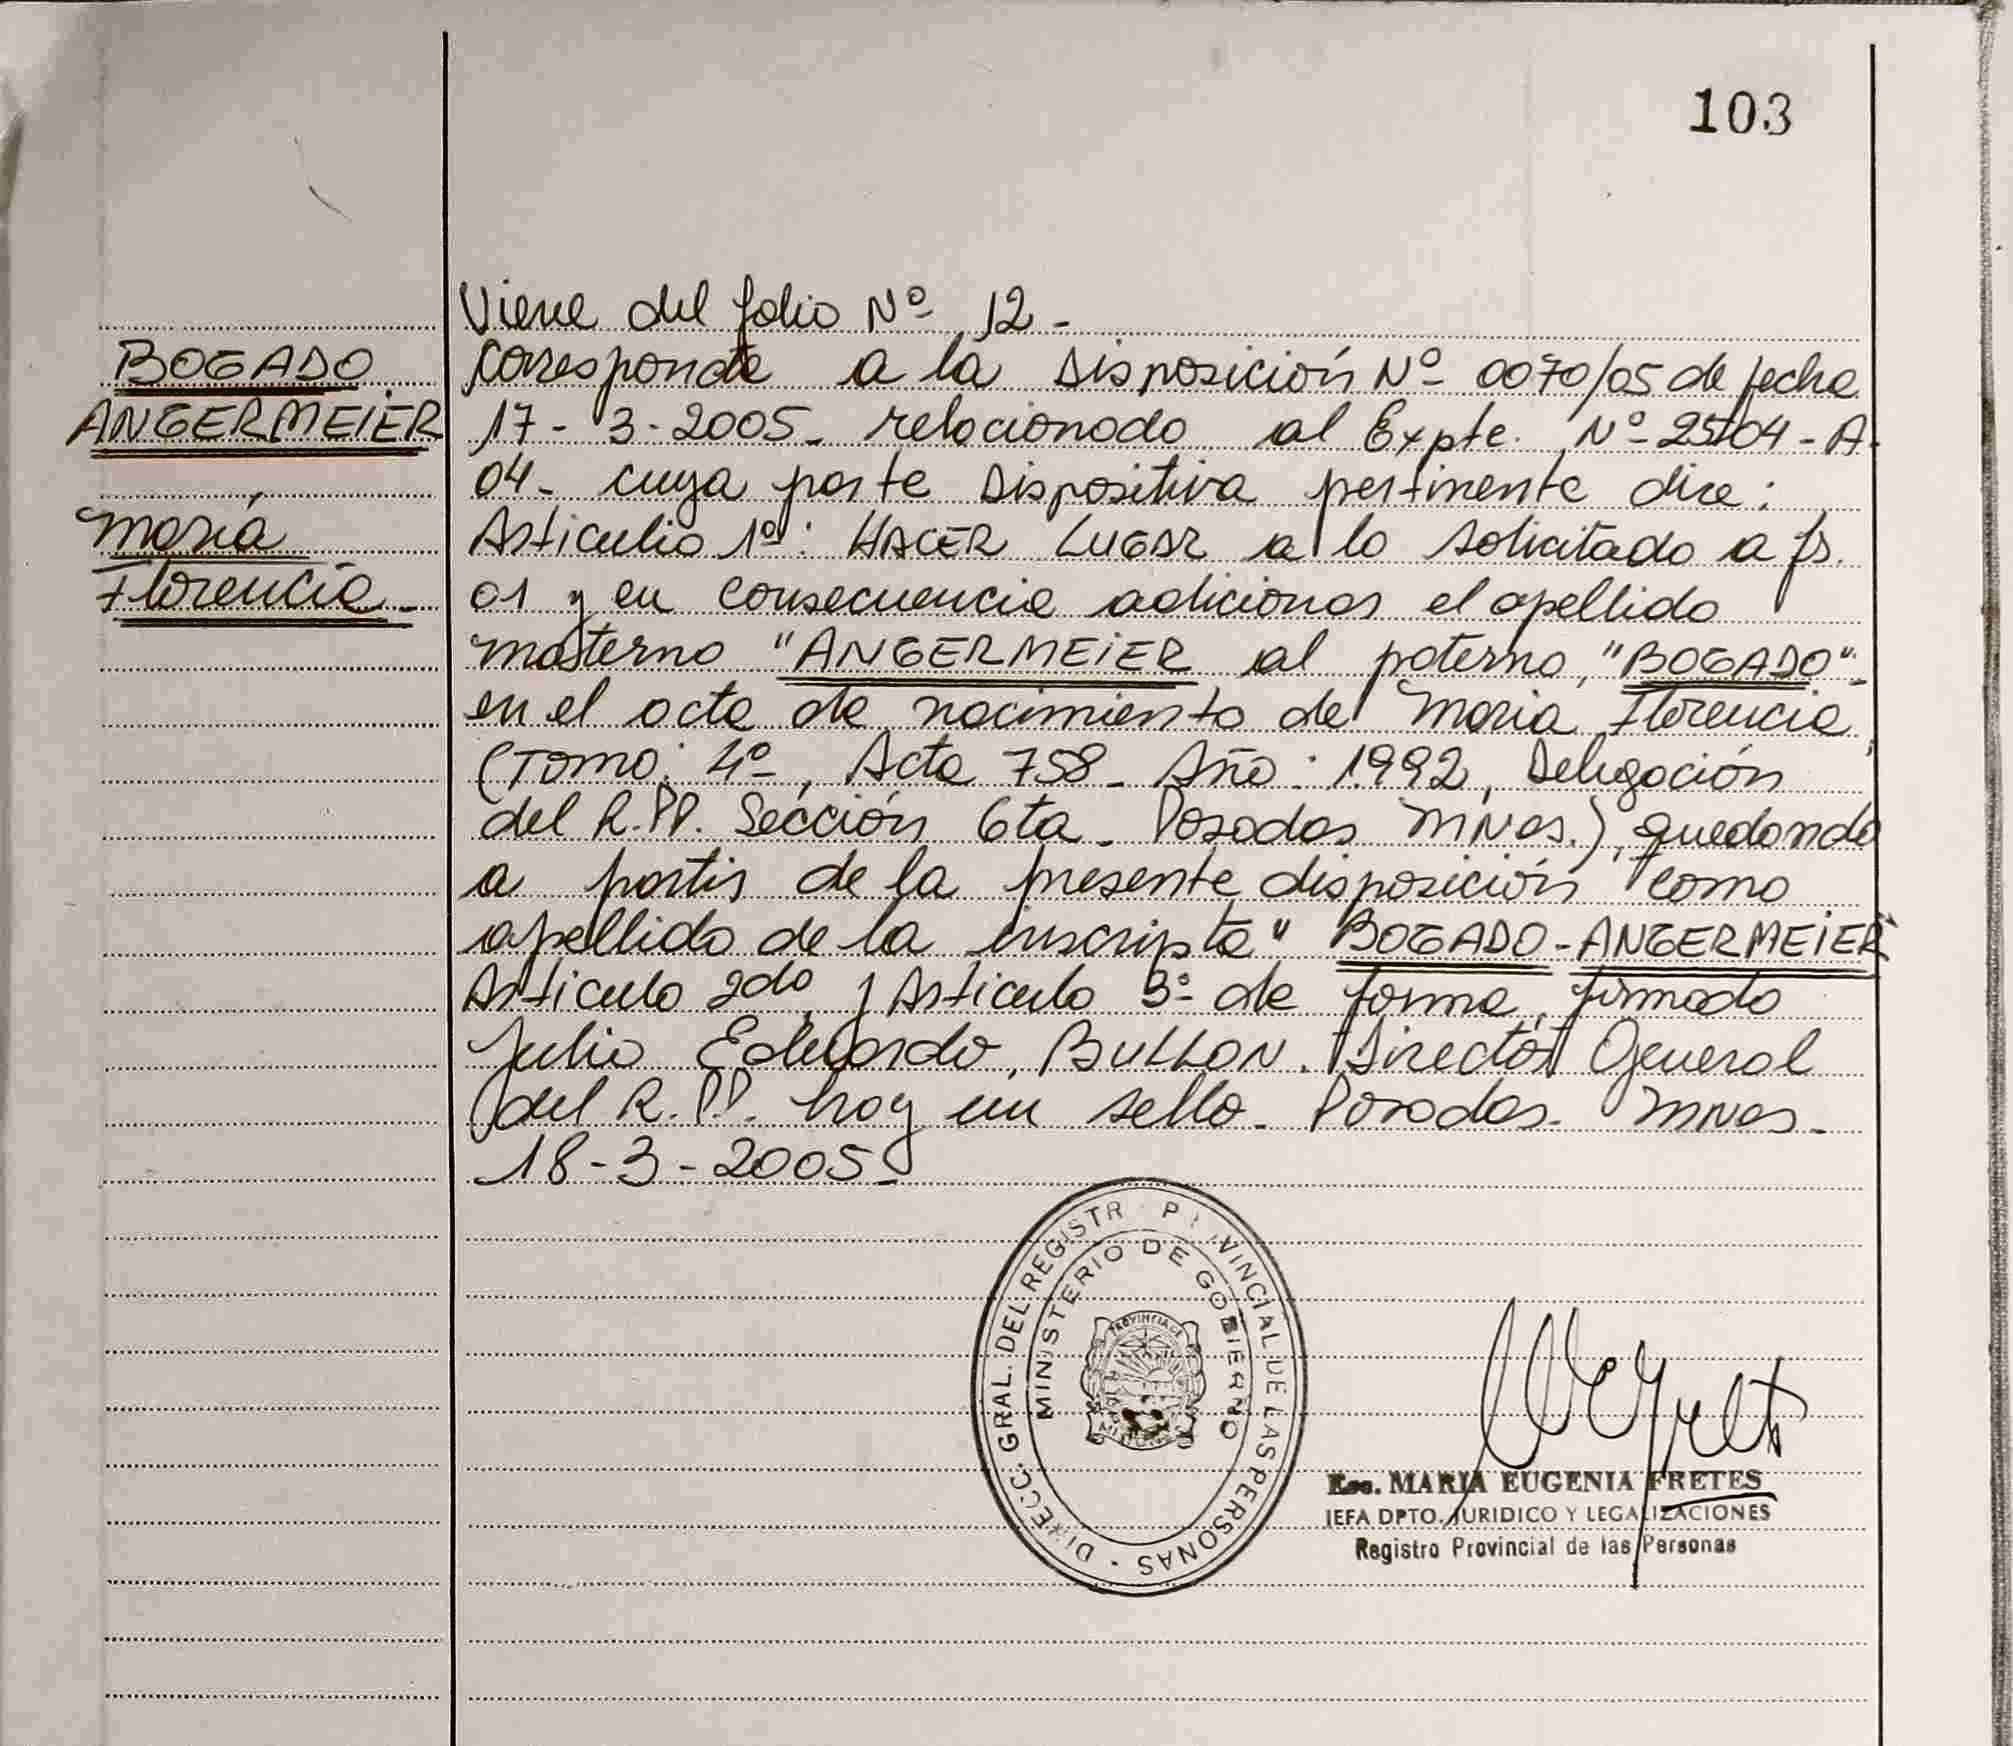 103
BOGADO
ANGERMEIER
María
Florencia-
Viene del folio Nº 12-
Corresponde a la Disposición Nº 0070/05 de fecha
17-3-2005- relacionado al Expte. Nº 2504-A-
04- cuya parte Dispositiva pertinente dice:
Articulio 1º: HACER LUGAR a lo solicitado a fs.
01 y en consecuencia adicionar el apellido
materno "ANGERMEIER al paterno "BOGADO"-
en el acta de nacimiento de Maria Florencia
(Tomo: 4º, Acta 758- Año: 1992, Delegación
del R.PP. Sección 6ta- Posadas MNes.), quedando
a partir de la presente disposición como
apellido de la inscripta" BOGADO-ANGERMEIER"
Articulo 2do y Articulo 3º de forma, firmado
Julio Eduardo, BULLON. Director General
del R.PP. hay un sello- Posadas- MNes-
18-3-2005-
DIRECC. GRAL. DEL REGISTR PROVINCIAL DE LAS PERSONAS
MINISTERIO DE GOBIERNO
PROVINCIA DE
MISIONES
Esc. MARIA EUGENIA FRETES
JEFA DPTO. JURIDICO Y LEGALIZACIONES
Registro Provincial de las Personas